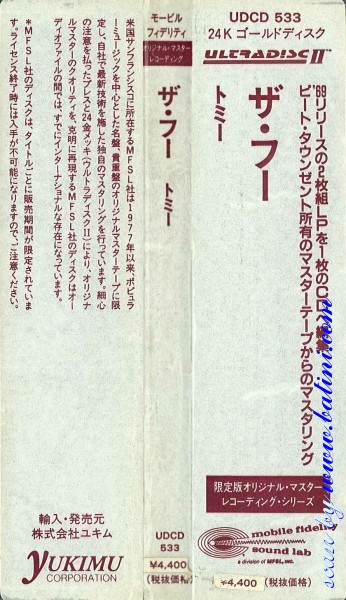 UDCD 533
24K ゴールドディスク
ULTRADISC II™
'69リリースの2枚組LPを1枚のCDへ編集
ピート・タウンゼント所有のマスターテープからのマスタリング
ザ・フー
トミー
限定版オリジナル・マスター
レコーディング・シリーズ
mobile fidelity
sound lab
a division of MFSL, inc.
¥4,400 (税抜価格)
モービル
フィデリティ
オリジナル・マスター
レコーディング
ザ・フー トミー
UDCD
533
¥4,400
(税抜価格)
米国サンフランシスコに所在するMFSL社は1977年以来、ポピュラ
ーミュージックを中心とした名盤、貴重盤のオリジナルマスターテープに限
定し、自社で最新技術を施した独自のマスタリングを行っています。細心
の注意を払ったプレスと24金メッキ(ウルトラディスクII)により、オリジナ
ルマスターのクオリティを、克明に再現するMFSL社のディスクはオー
ディオファイルの間では、すでにインターナショナルな存在になっています。
*MFSL社のディスクは、タイトルごとに販売期間が限定されていま
す。ライセンス終了時には入手が不可能になりますので、ご注意ください。
輸入・発売元
株式会社ユキム
YUKIMU
CORPORATION
scan by www.batini.com